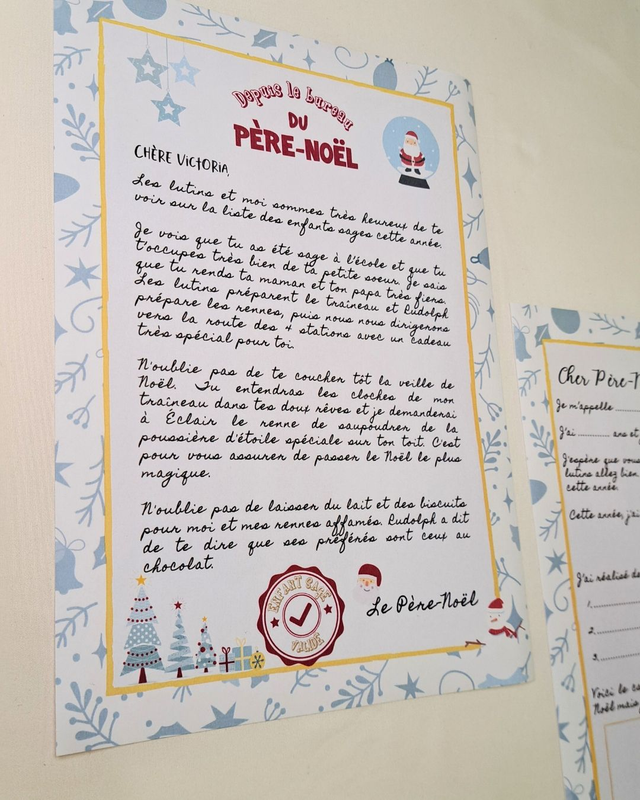 Depuis le bureau
DU
PÈRE-NOËL
CHÈRE VICTORIA,
Les lutins et moi sommes très heureux de te
voir sur la liste des enfants sages cette année.
Je vois que tu as été sage à l'école et que tu
t'occupes très bien de ta petite soeur. Je sais
que tu rends ta maman et ton papa très fiers.
Les lutins préparent le traineau et Rudolph
prépare les rennes, puis nous nous dirigerons
vers la route des 4 stations avec un cadeau
très spécial pour toi.
N'oublie pas de te coucher tôt la veille de
Noël. Tu entendras les cloches de mon
traîneau dans tes doux rêves et je demanderai
à Éclair le renne de saupoudrer de la
poussière d'étoile spéciale sur ton toit. C'est
pour vous assurer de passer le Noël le plus
magique.
N'oublie pas de laisser du lait et des biscuits
pour moi et mes rennes affamés. Rudolph a dit
de te dire que ses préférés sont ceux au
chocolat.
ENFANT SAGE
VALIDÉ
Le Père-Noël
Cher Père-N
Je m'appelle
J'ai ans et
J'espère que vous
lutins allez bien
cette année.
Cette année, j'ai
J'ai réalisé de
1.
2.
3.
Voici le ca
Noël mais